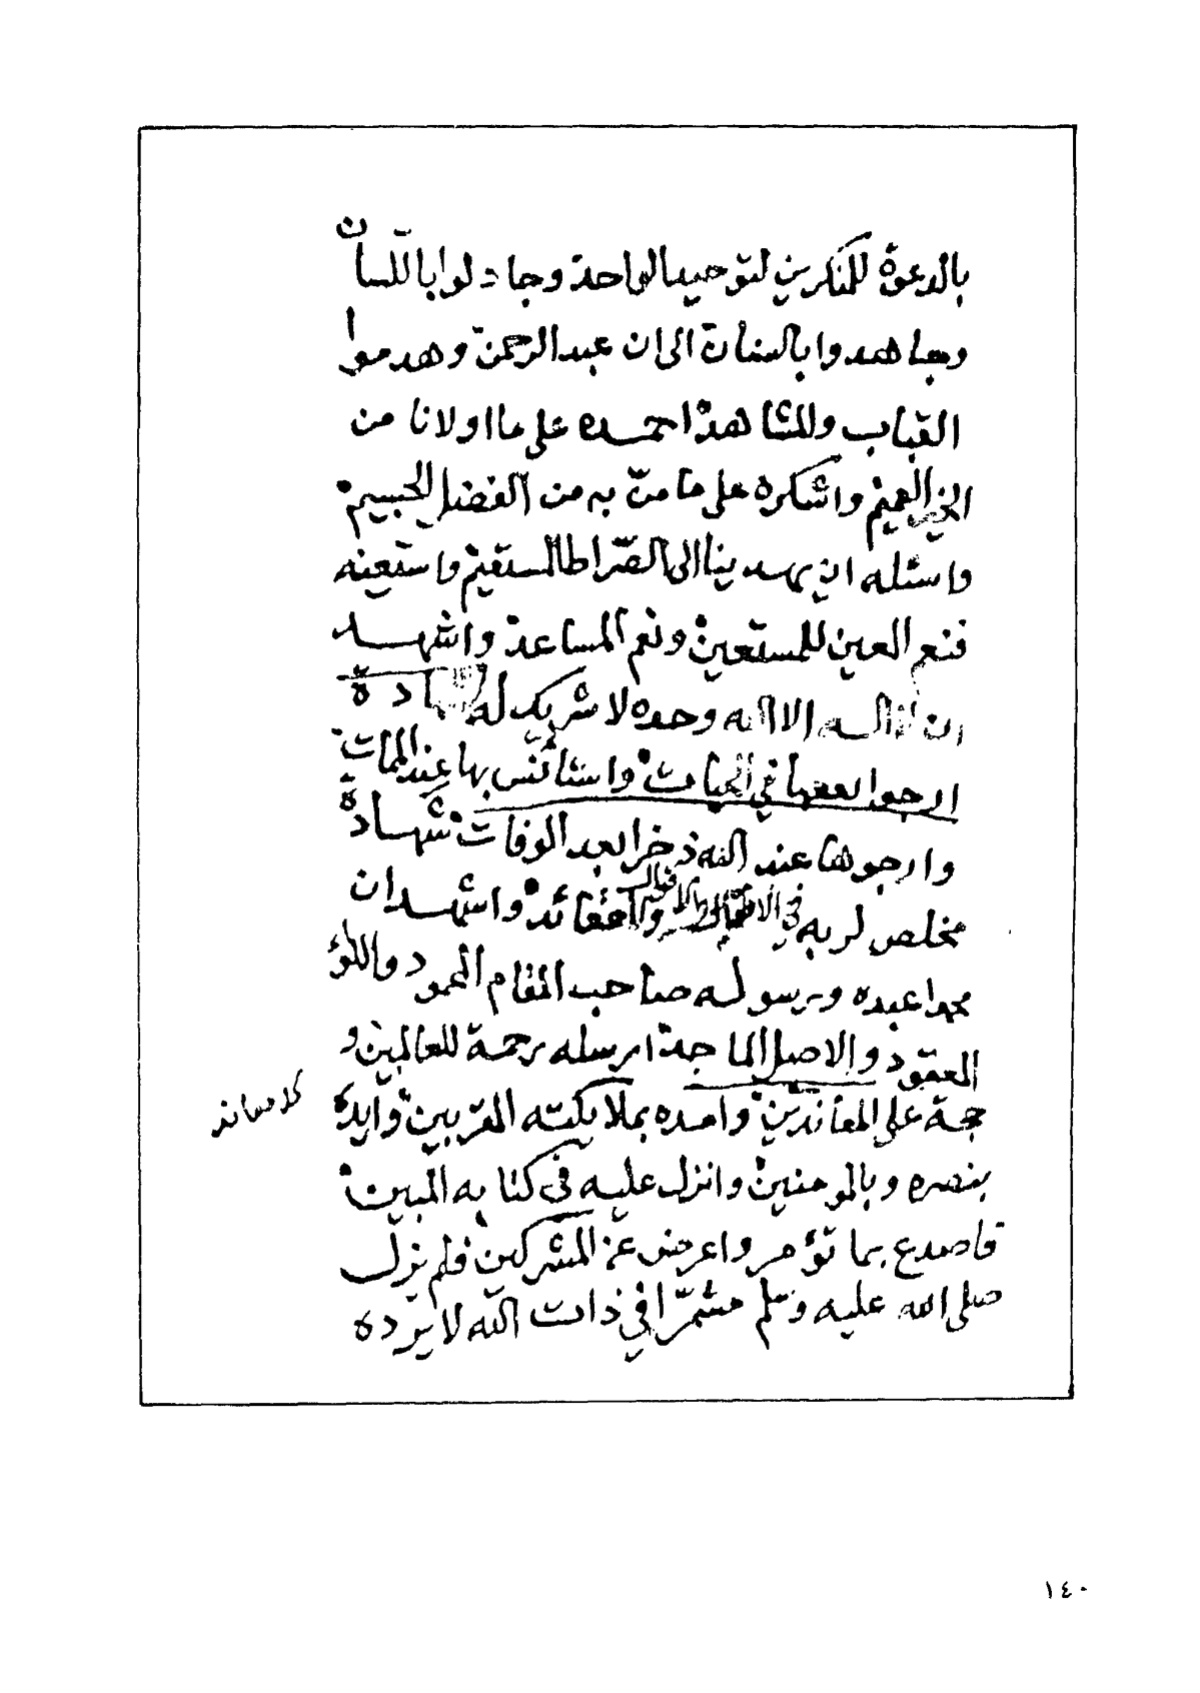 بالدعوة للمنكرين لتوحيد الواحد وجادلوا باللسان
وجاهدوا بالسنان الى ان عبد الرحمن وهدموا
القباب والمشاهد احمده على ما اولانا من
الخير العميم واشكره على ما منّ به من الفضل الجسيم
واسئله ان يهدينا الى الصّراط المستقيم واستعينه
فنعم العين للمستعين ونعم المساعد واشهد
ان لا اله الا الله وحده لا شريك له شهادة
ارجوا بها في الحيات واستأنس بها عند الممات
وارجوها عند الله ذخرا بعد الوفات شهادة
مخلص لربه في والعقائد واشهد ان
محمدا عبده ورسوله صاحب المقام المحمود واللؤٰ
العقود والاصل الماجد ارسله رحمة للعالمين و
حجة على المعاندين وامده بملايكته المقربين وايده
بنصره وبالمومنين وانزل عليه في كتابه المبين
فاصدع بما تؤمر واعرض عن المشركين فلم يزل
صلى الله عليه وسلم مشمّرا في ذات الله لا يردّه
١٤٠